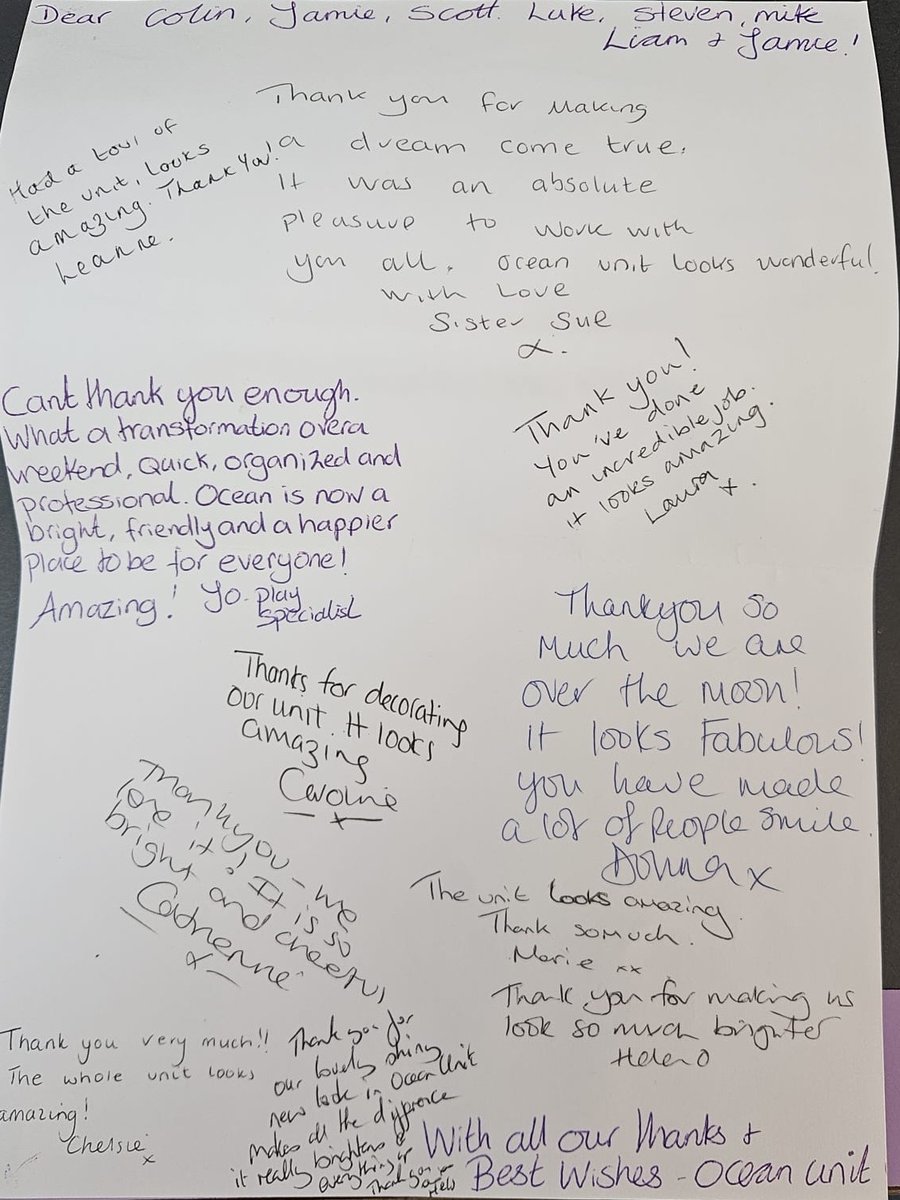 Dear Colin, Jamie, Scott. Luke, Steven, mike
Liam & Jamie!
Thank you for making
a dream come true.
It was an absolute
pleasure to work with
you all. Ocean unit looks wonderful.
With Love
Sister Sue
x.
Had a tour of
the unit, looks
amazing. Thank You!
Leanne.
Thank you!
You've done
an incredible job.
it looks amazing.
Laura x.
Cant thank you enough.
What a transformation over a
weekend, Quick, organized and
professional. Ocean is now a
bright, friendly and a happier
place to be for everyone!
Amazing! Yo - play
specialist
Thankyou so
much we are
over the moon!
It looks Fabulous!
you have made
a lot of People Smile.
Donna x
Thanks for decorating
our unit. It looks
amazing
Caroline
x
Thankyou - we
love it! It is so
bright and cheerful
Catherine
x
The unit looks amazing.
Thank somuch.
Marie xx
Thank you for making us
look so much brighter
Helen O
Thank you very much!!
The whole unit looks
amazing!
Chelsie x
Thank you for
our lovely shiny
new look in Ocean Unit
makes all the difference
it really brightens
everything up
Thank you
With all our thanks &
Best Wishes - Ocean unit